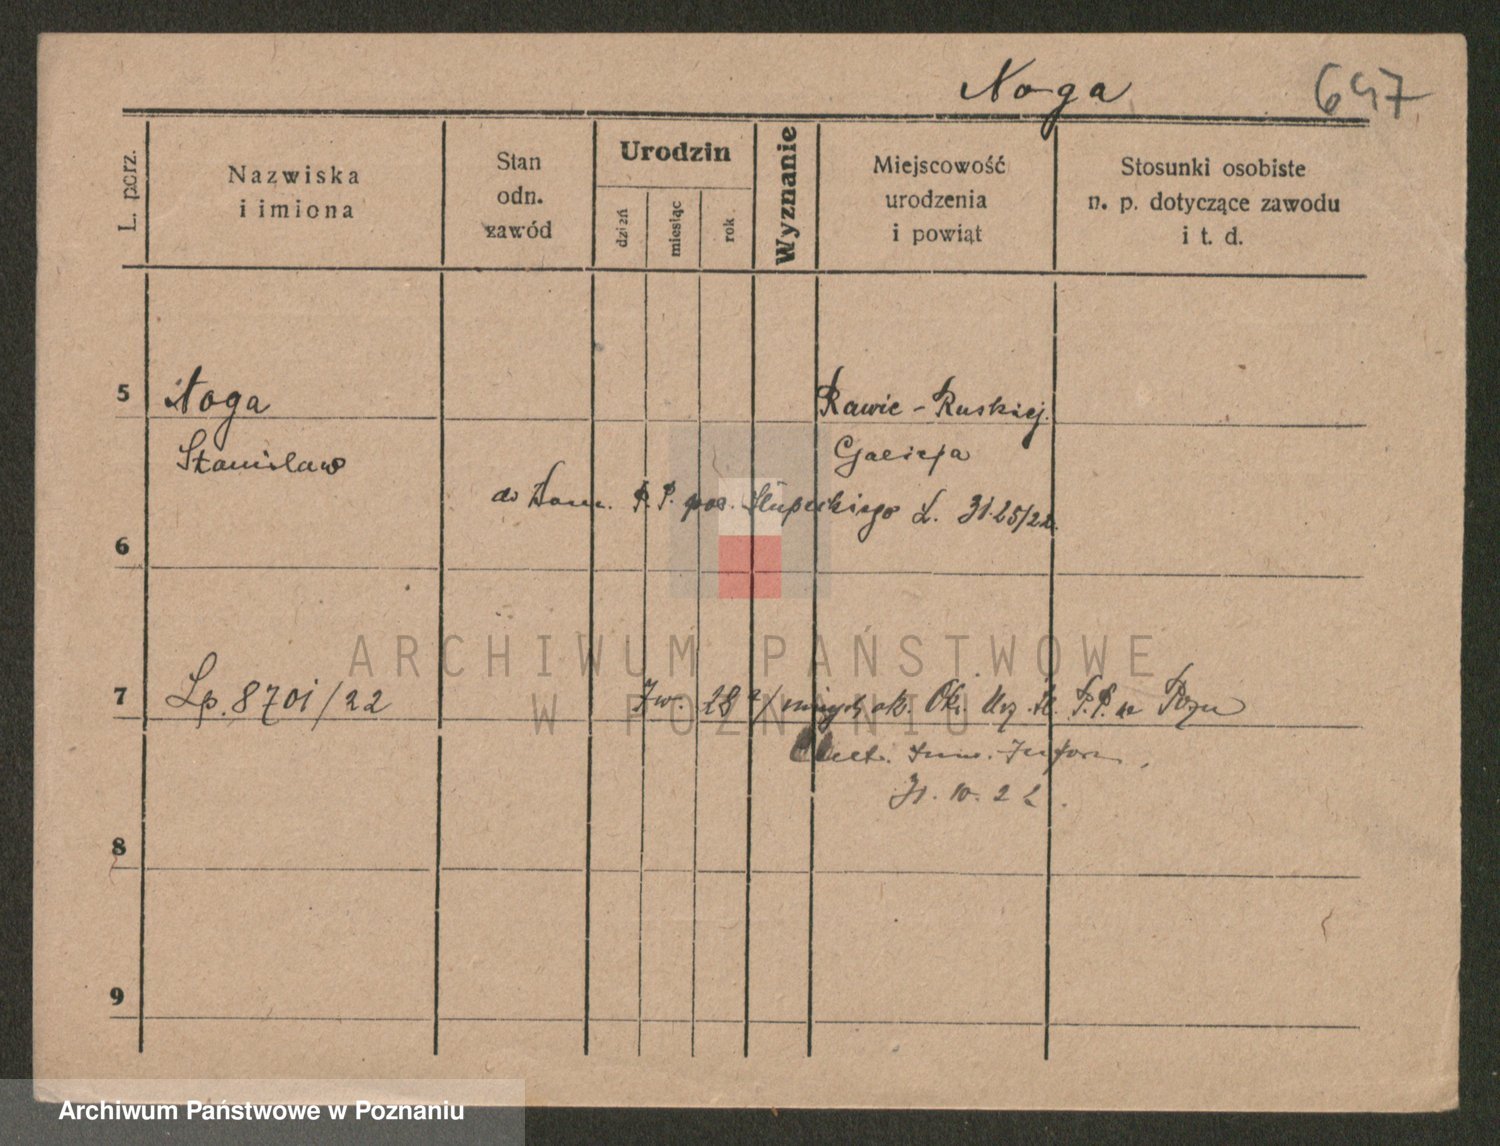 Noga 647
L. porz.
Nazwiska
i imiona
Stan
odn.
zawód
Urodzin
dzień
miesiąc
rok
Wyznanie
Miejscowość
urodzenia
i powiąt
Stosunki osobiste
n. p. dotyczące zawodu
i t. d.
5 Noga Rawie - Ruskiej.
Stanisław Galicja
do Kom. P.P. pow. Słupeckiego L. 3125/22.
6
ARCHIWUM PAŃSTWOWE
W POZNANIU
7 Lp. 8701/22 Zw. 28 Ok. P.P. w Pozn
10. 22.
8
9
Archiwum Państwowe w Poznaniu